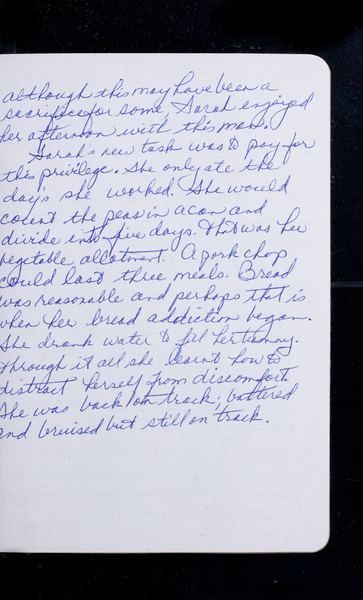 although this may have been a
sacrifice for some Sarah enjoyed
her afternoon with this man.
Sarah's new task was to pay for
this privilege. She only ate the
day's she worked. She would
count the peas in a can and
divide into five days. That was her
vegetable allotment. A pork chop
could last three meals. Bread
was reasonable and perhaps that is
when her bread addiction began.
She drank water to fil her tummy.
Through it all she learnt how to
distract herself from discomfort.
She was back on track; battered
and bruised but still on track.